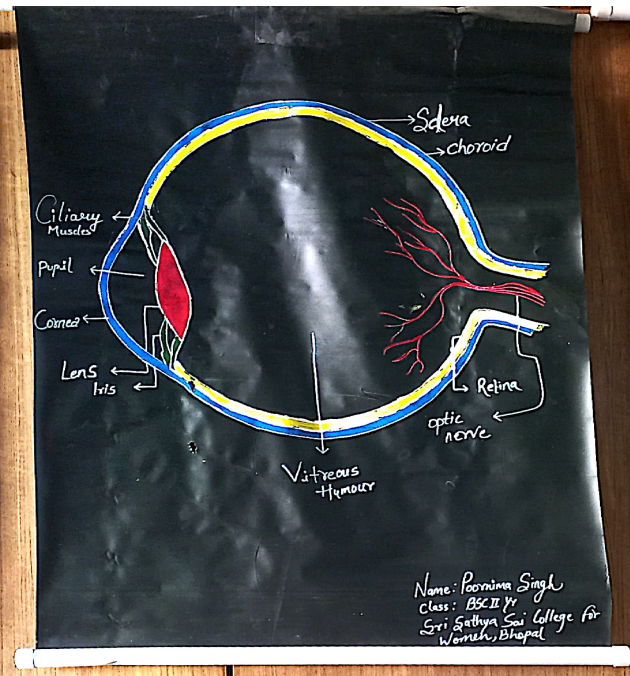 Sclera
Choroid
Ciliary
Muscles
Pupil
Cornea
Lens
Iris
Retina
optic
nerve
Vitreous
Humour
Name: Poornima Singh
Class: BSC II Yr
Sri Sathya Sai College for
Women, Bhopal